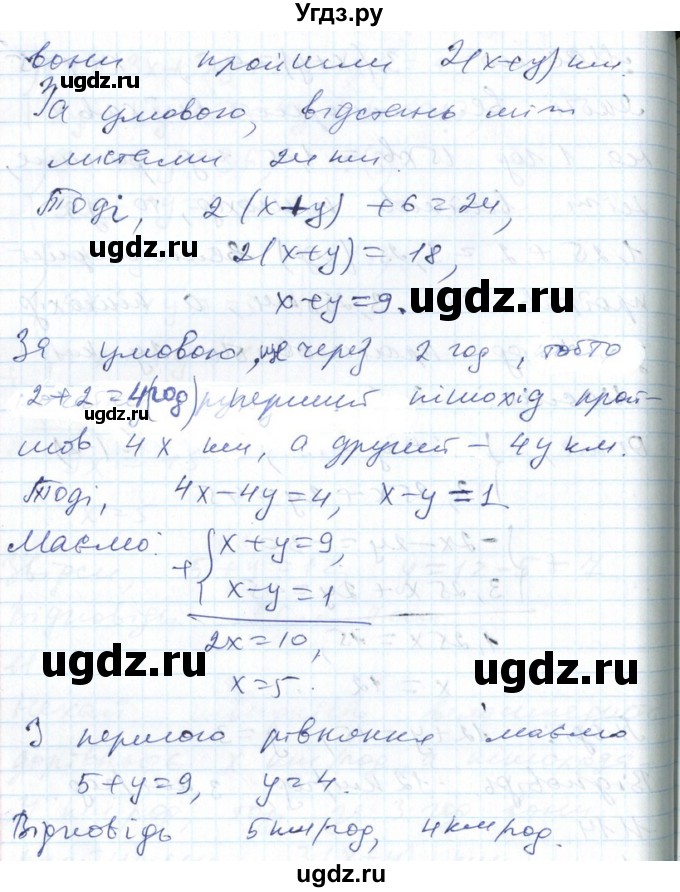 Угдз.ру
вони пройшли 2(x+y) км.
За умовою, відстань між
містами 24 км.
Тоді, 2(x+y)+6=24,
2(x+y)=18,
x+y=9.
За умовою, ще через 2 год, тобто
2+2=4(год) перший пішохід прой-
шов 4x км, а другий – 4y км.
Тоді, 4x-4y=4, x-y=1
Маємо: + { x+y=9,
x-y=1
2x=10,
x=5.
З першого рівняння маємо
5+y=9, y=4.
Відповідь 5км/год, 4км/год.
ugdz.ru
ugdz.ru
ugdz.ru
ugdz.ru
ugdz.ru
ugdz.ru
ugdz.ru
ugdz.ru
ugdz.ru